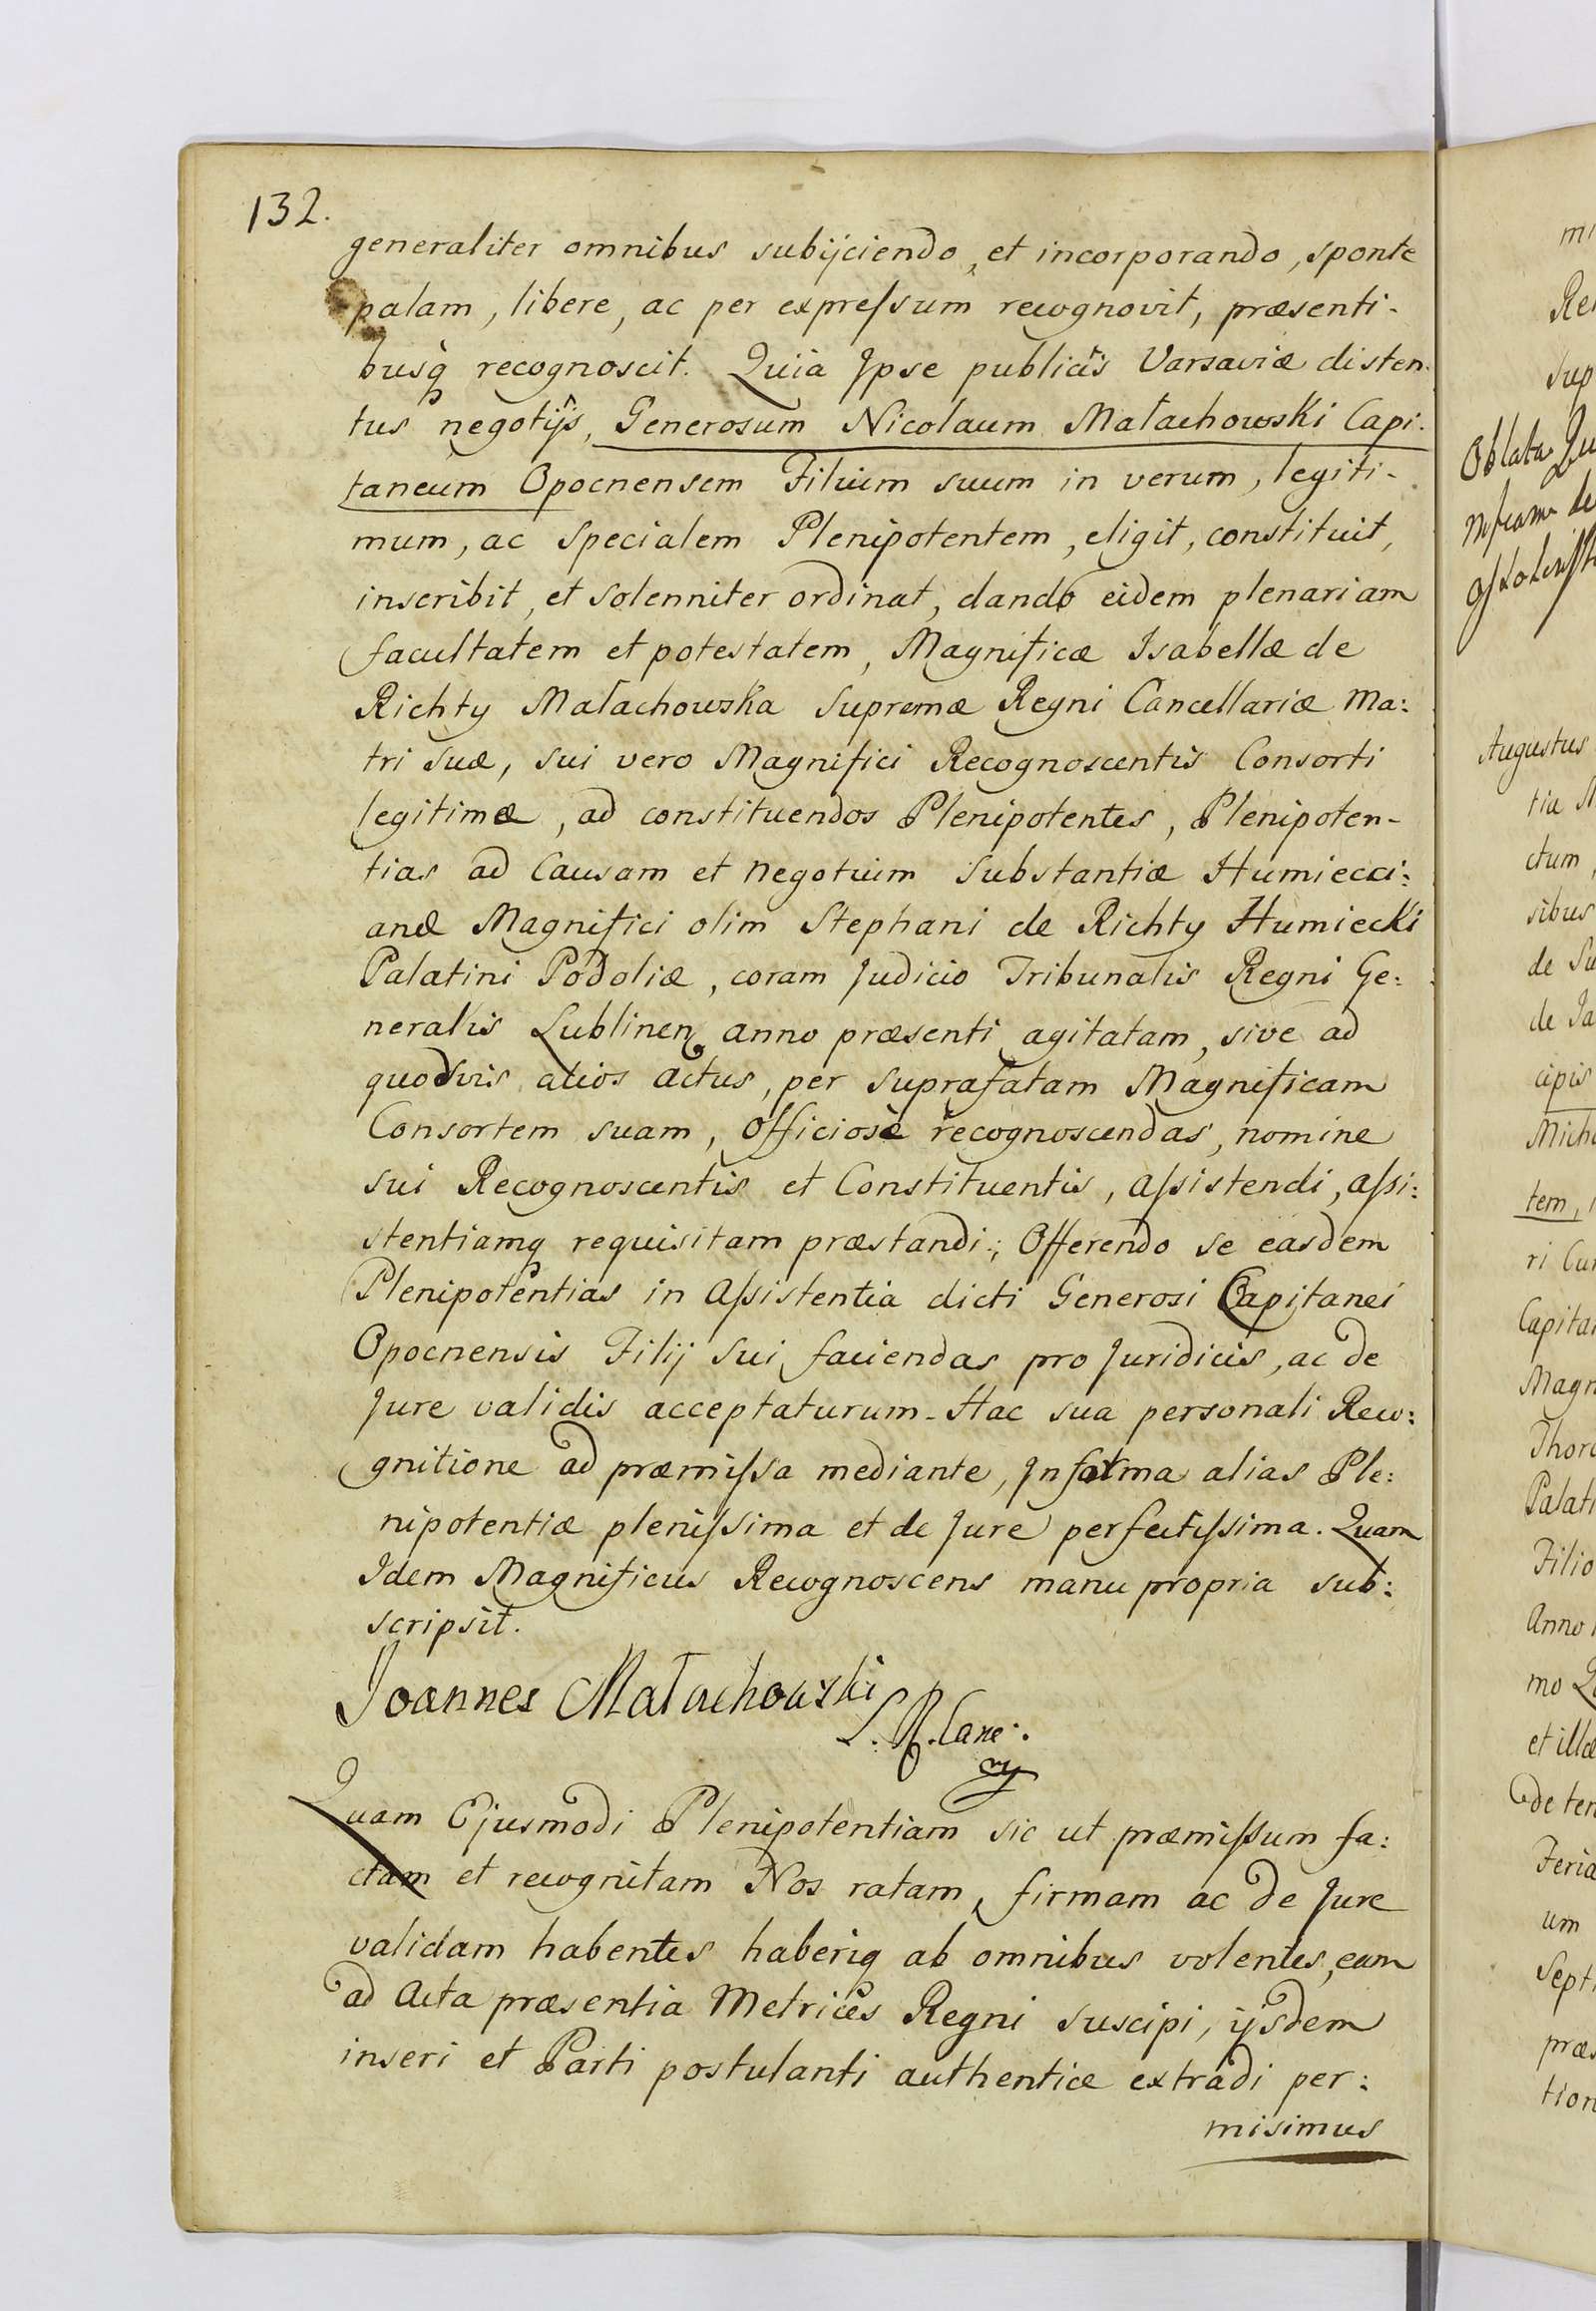 132.
generaliter omnibus subijciendo, et incorporando, sponte
palam, libere, ac per expreſsum recognovit, præsenti-
busq̃ recognoscit. Quia Jpse publicis Varsaviæ disten-
tus negotijs, Generosum Nicolaum Małachowski Capi-
taneum Opocnensem Filium suum in verum, legiti-
mum, ac Specialem Plenipotentem, eligit, constituit,
inscribit, et solenniter ordinat, dando eidem plenariam
facultatem et potestatem, Magnificæ Isabellæ de
Richty Małachowska Supremæ Regni Cancellariæ Ma:
tri suæ, sui vero Magnifici Recognoscentis Consorti
legitimæ, ad constituendos Plenipotentes, Plenipoten-
tias ad Causam et Negotium Substantiæ Humiecci:
anæ Magnifici olim Stephani de Richty Humiecki
Palatini Podoliæ, coram Judicio Tribunalis Regni Ge:
neralis Lublinen. anno præsenti agitatam, sive ad
quodvis alios actus, per suprafatam Magnificam
Consortem suam, Officiosè recognoscendas, nomine
sui Recognoscentis et Constituentis, aſsistendi, aſsi:
stentiamq̃ requisitam præstandi; Offerendo se easdem
Plenipotentias in Aſsistentia dicti Generosi Capitanei
Opocnensis Filij sui faciendas pro Juridicis, ac de
Jure validis acceptaturum. Hac sua personali Reco:
gnitione ad præmiſsa mediante, Jn forma alias Ple:
nipotentiæ pleniſsima et de Jure perfectiſsima. Quam
Idem Magnificus Recognoscens manu propria sub:
scripsit.
Joannes Małachowski
S. R. Canc:
mp
Quam Ejusmodi Plenipotentiam sic ut præmiſsum fa:
ctam et recognitam Nos ratam, firmam ac de Jure
validam habentes haberiq̃ ab omnibus volentes, eam
ad Acta præsentia Metrices Regni suscipi, ijsdem
inseri et Parti postulanti authentice extradi per:
misimus
Oblata
Augustus
ctum
sibus
de
cipis
tem,
Capita
Magn
Palati
Filio
Anno
et illæ
de
um